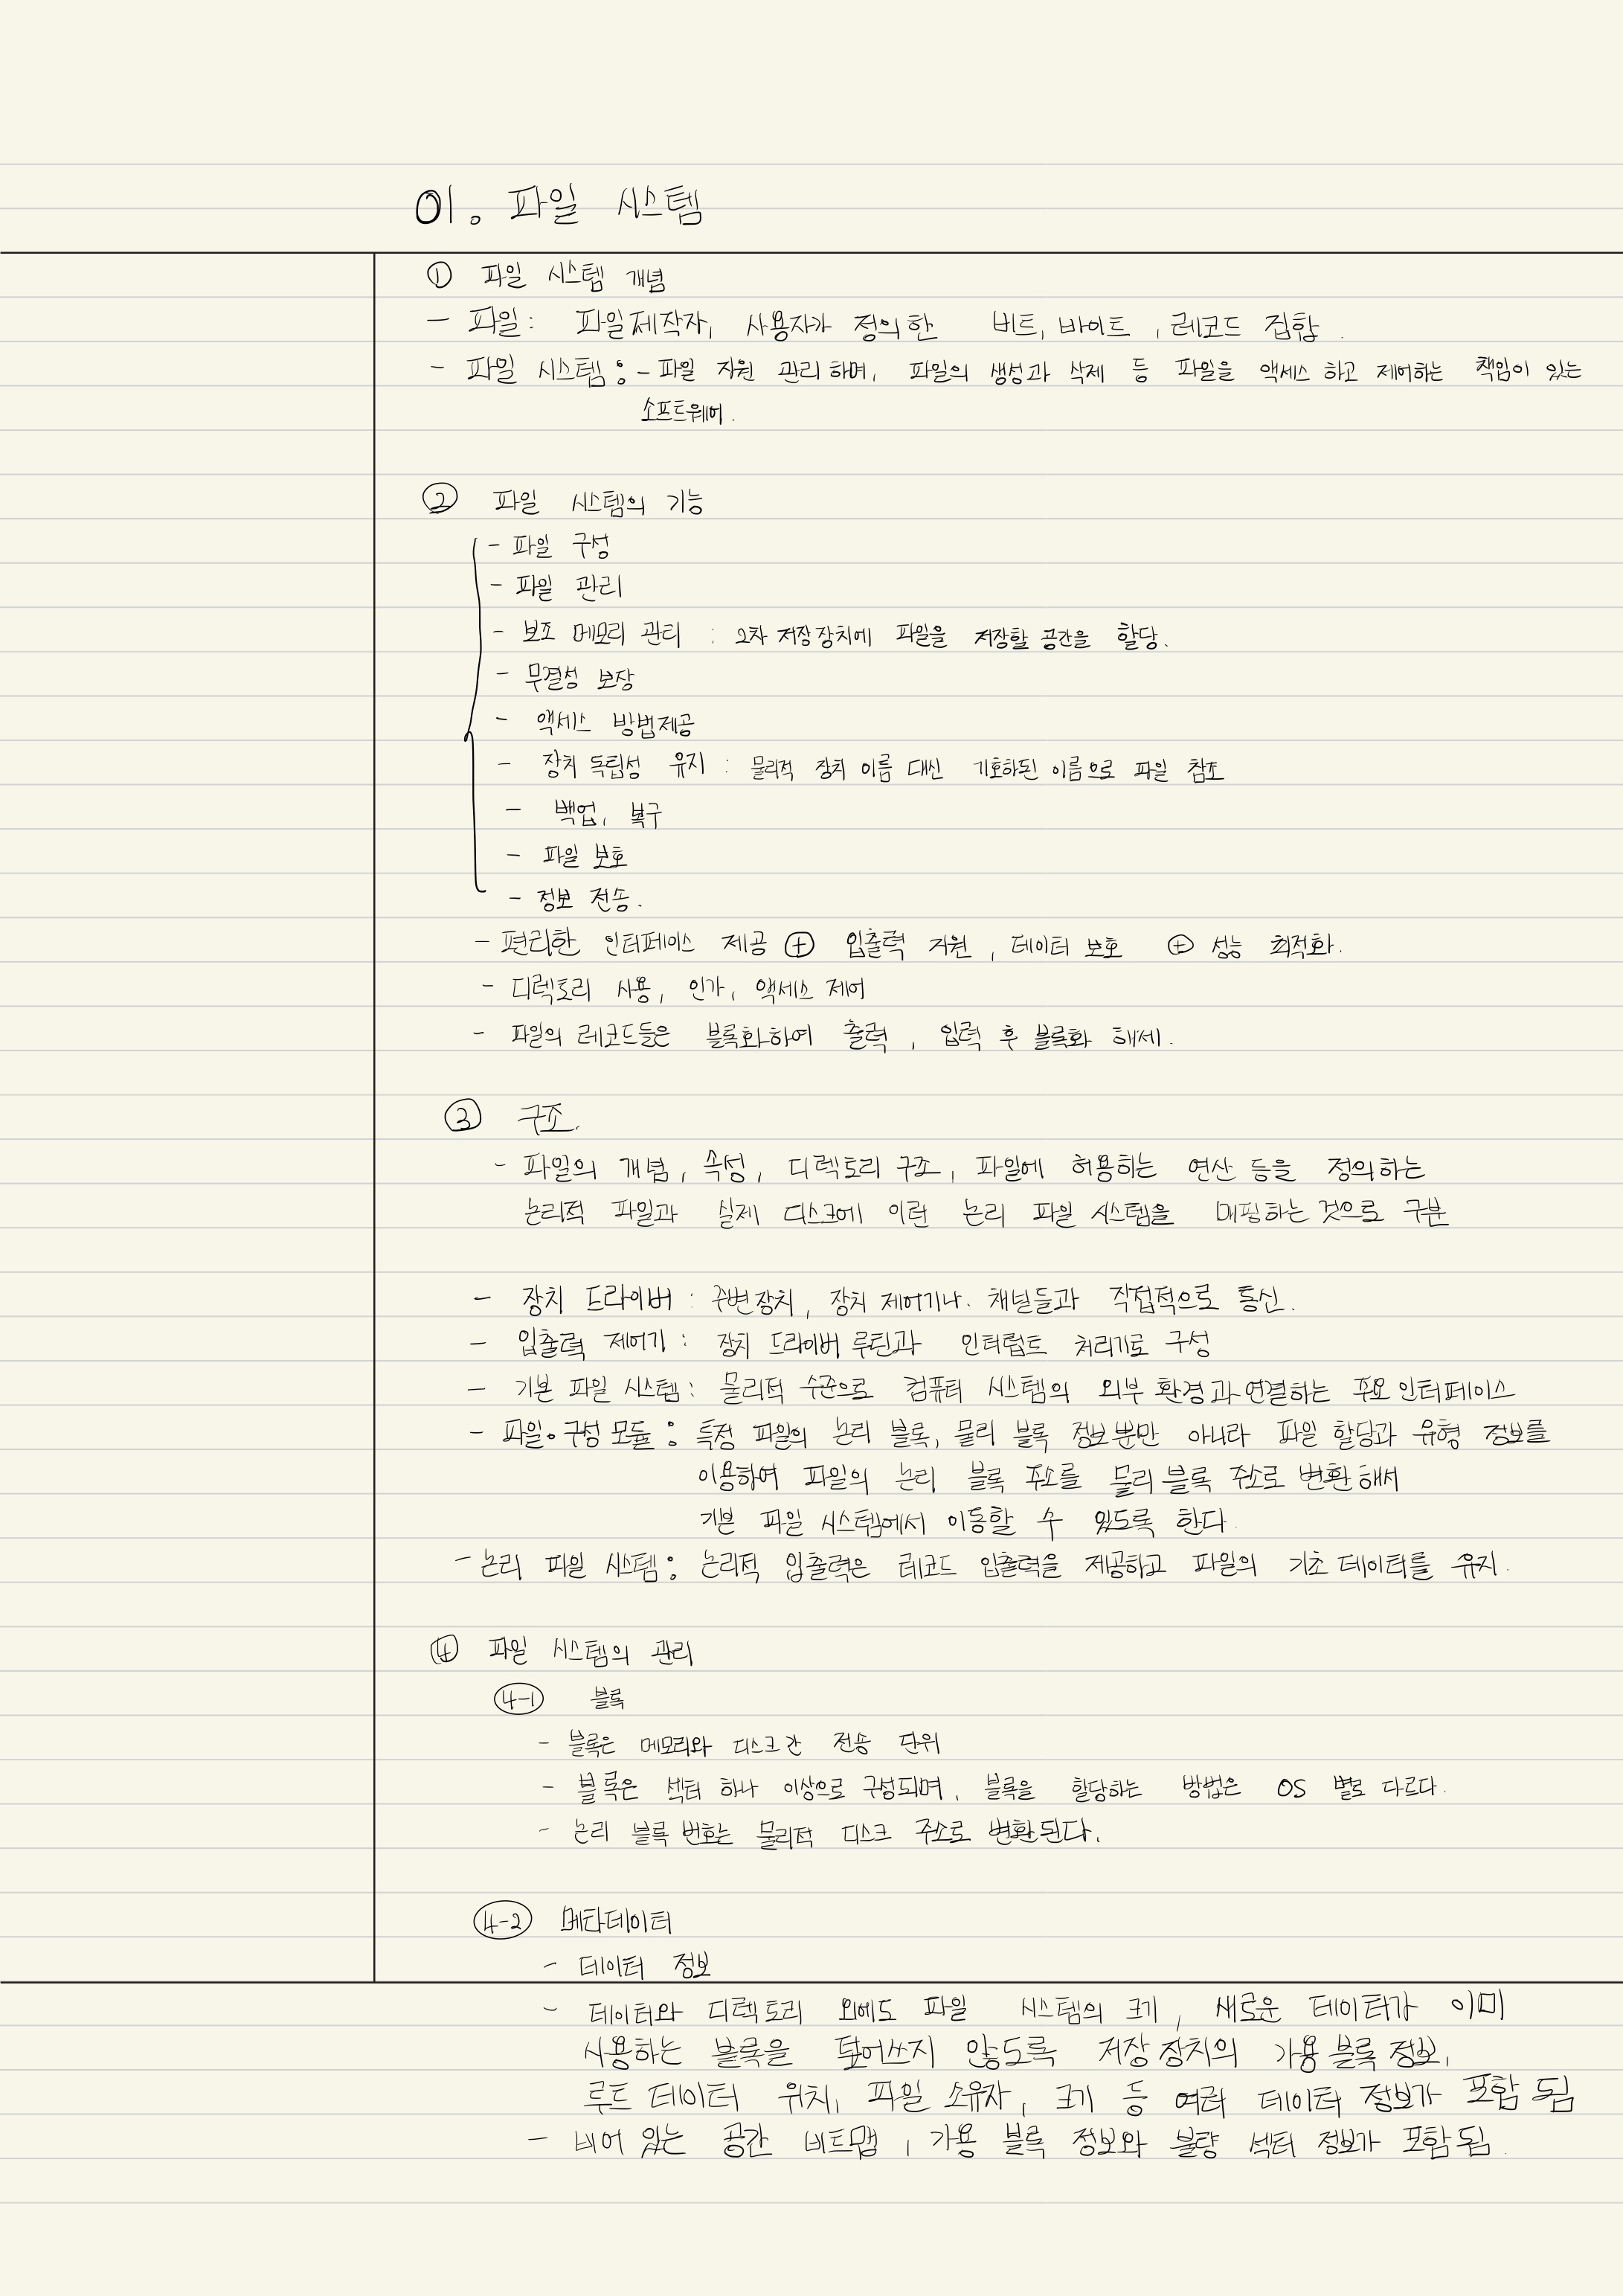 01. 파일 시스템
① 파일 시스템 개념
- 파일 : 파일제작자, 사용자가 정의한 비트, 바이트, 레코드 집합.
- 파일 시스템 : - 파일 자원 관리하며, 파일의 생성과 삭제 등 파일을 액세스 하고 제어하는 책임이 있는
소프트웨어.
② 파일 시스템의 기능
- 파일 구성
- 파일 관리
- 보조 메모리 관리 : 2차 저장장치에 파일을 저장할 공간을 할당.
- 무결성 보장
- 액세스 방법제공
- 장치 독립성 유지 : 물리적 장치 이름 대신 기호화된 이름으로 파일 참조
- 백업, 복구
- 파일 보호
- 정보 전송.
- 편리한 인터페이스 제공 ⊕ 입출력 지원, 데이터 보호 ⊕ 성능 최적화.
- 디렉토리 사용, 인가, 액세스 제어
- 파일의 레코드들은 블록화하여 출력, 입력 후 블록화 해제.
③ 구조.
- 파일의 개념, 속성, 디렉토리 구조, 파일에 허용하는 연산 등을 정의하는
논리적 파일과 실제 디스크에 이런 논리 파일 시스템을 매핑하는 것으로 구분
- 장치 드라이버 : 주변장치, 장치 제어기나 채널들과 직접적으로 통신.
- 입출력 제어기 : 장치 드라이버 루틴과 인터럽트 처리기로 구성
- 기본 파일 시스템 : 물리적 수준으로 컴퓨터 시스템의 외부 환경과 연결하는 주요 인터페이스
- 파일∘구성 모듈 : 특정 파일의 논리 블록, 물리 블록 정보뿐만 아니라 파일 할당과 유형 정보를
이용하여 파일의 논리 블록 주소를 물리 블록 주소로 변환해서
기본 파일 시스템에서 이동할 수 있도록 한다.
- 논리 파일 시스템 : 논리적 입출력은 레코드 입출력을 제공하고 파일의 기초 데이터를 유지.
④ 파일 시스템의 관리
4-1 블록
- 블록은 메모리와 디스크 간 전송 단위
- 블록은 섹터 하나 이상으로 구성되며, 블록을 할당하는 방법은 OS 별로 다르다.
- 논리 블록 번호는 물리적 디스크 주소로 변환된다.
4-2 메타데이터
- 데이터 정보
- 데이터와 디렉토리 외에도 파일 시스템의 크기, 새로운 데이터가 이미
사용하는 블록을 덮어쓰지 않도록 저장 장치의 가용 블록 정보,
루트 데이터 위치, 파일 소유자, 크기 등 여러 데이터 정보가 포함 됨
- 비어 있는 공간 비트맵, 가용 블록 정보와 불량 섹터 정보가 포함됨.